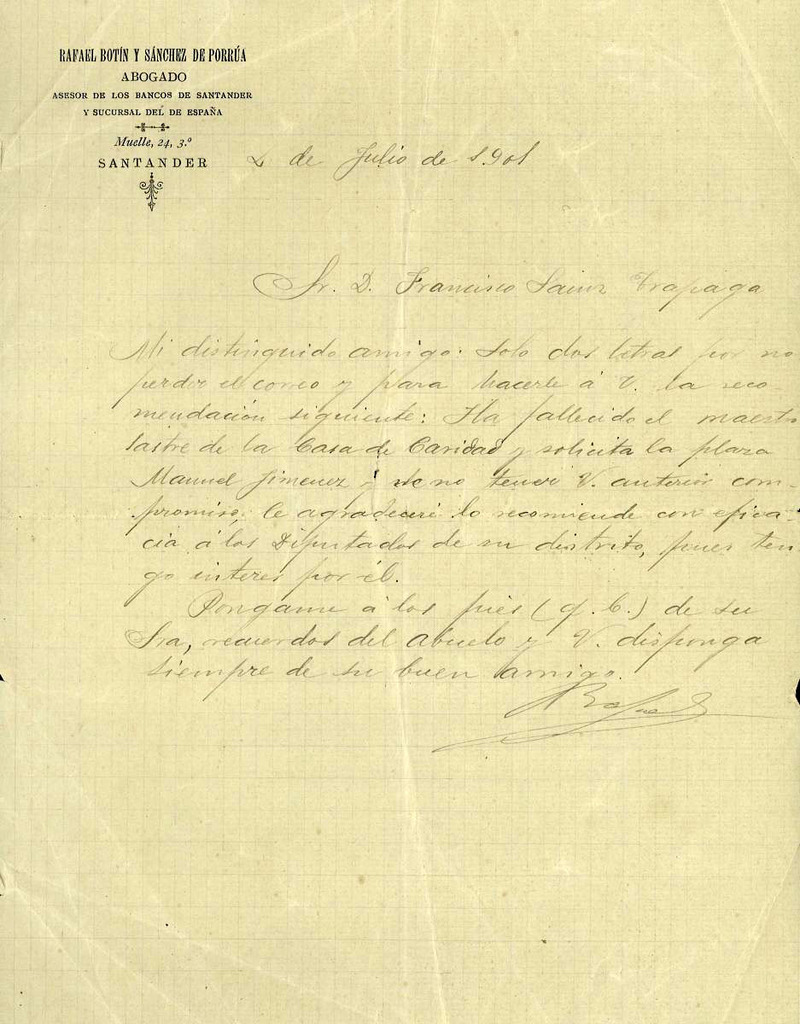 RAFAEL BOTÍN Y SÁNCHEZ DE PORRÚA
ABOGADO
ASESOR DE LOS BANCOS DE SANTANDER
Y SUCURSAL DEL DE ESPAÑA
Muelle, 24, 3.º
SANTANDER
2 de Julio de 1901
Sr. D. Francisco Sainz Trapaga
Mi distinguido amigo: Solo dos letras por no
perder el correo y para hacerle á V. la reco-
mendación siguiente: Ha fallecido el maestro
sastre de la Casa de Caridad y solicita la plaza
Manuel Jimenez; de no tener V. anterior com-
promiso, le agradeceré lo recomiende con efica-
cia á los Diputados de su distrito, pues ten-
go interes por él.
Pongame á los pies (q. b.) de su
Sra, recuerdos del abuelo y V. disponga
siempre de su buen amigo.
Rafael